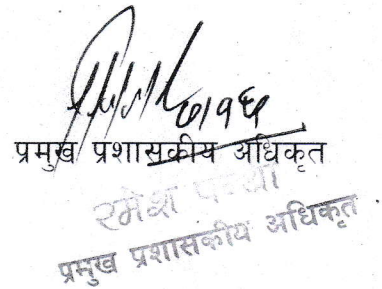 ७।१६
प्रमुख प्रशासकीय अधिकृत
रमेश
प्रमुख प्रशासकीय अधिकृत